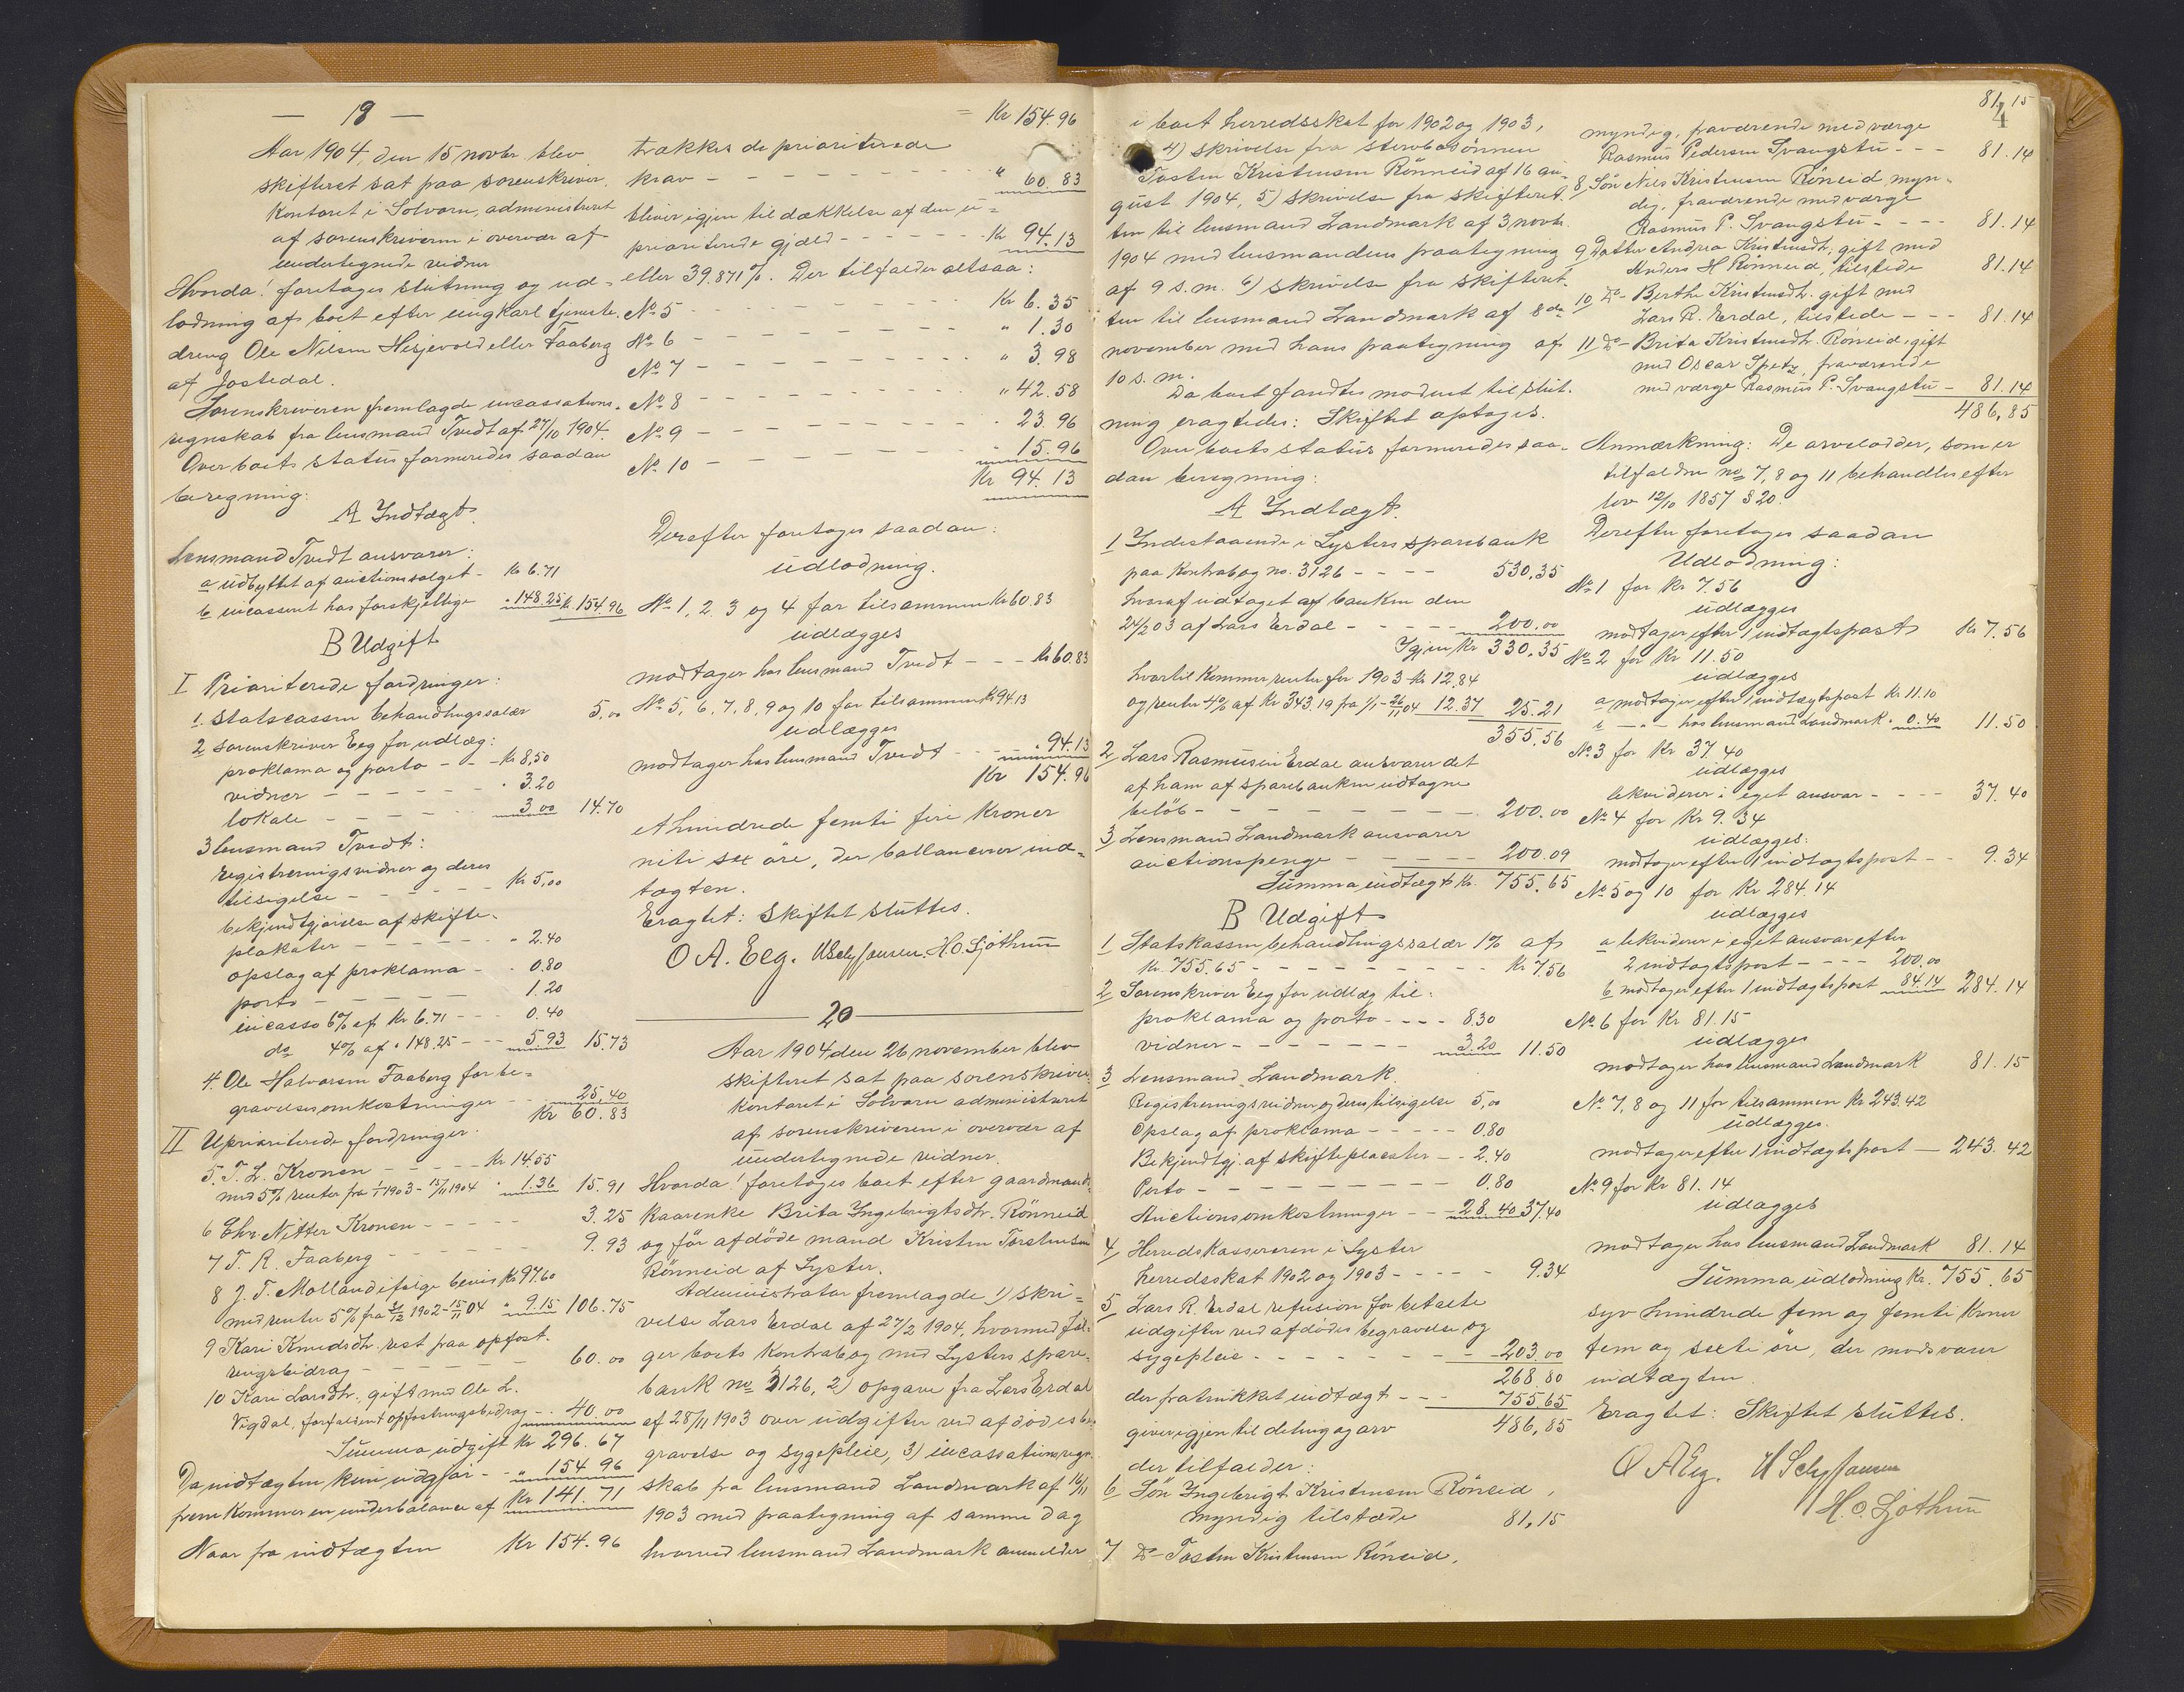 — 18 —
Aar 1904, den 15 novbr. blev
skifteret sat paa sorenskriver
kontoret i Solvorn, administreret
af sorenskriveren i overvær af
undertegnede vidner
Hvorda! foretoges slutning og ud=
lodning af boet efter ungkarl tjeneste-
dreng Ole Nilsen Hesjevold eller Faaberg
af Jostedal.
Sorenskriveren fremlagde incassations-
regnskab fra lensmand Tvedt af 27/10 1904.
Over boets status formeredes saadan
beregning:
A Indtægt.
Lensmand Tvedt ansvarer:
a udbyttet af auctionssalget - Kr 6.71
b incasseret hos forskjellige " 148.25 Kr. 154.96
B Udgift
I Prioriterede fordringer:
1. Statscassen behandlingssalær 5,00
2 sorenskriver Eeg for udlæg:
proklama og porto - - Kr 8,50
vidner - - - - - " 3.20
lokale - - - - 3.00 14.70
3 lensmand Tvedt:
registreringsvidner og deres
tilsigelse - - - - - Kr 5,00
bekjendtgjørelse af skifte-
plakater - - - - - - " 2.40
opslag af proklama - . 0.80
porto - - - - - 1.20
incasso 6% af Kr 6.71 - - - 0.40
do 4% af " 148.25 - - - 5.93 15.73
4. Ole Halvorsen Faaberg for be=
gravelsesomkostninger - - 25,40
Kr 60.83
II Uprioriterede fordringer:
5. T. L. Kronen - - - - - Kr 14.55
med 5% renter fra 1/1 1903 - 15/11 1904 " 1.36 15.91
6 Chr. Nitter Kronen - - - - - 3.25
7 T. R. Faaberg - - - - - - 9.93
8 J. T. Molland ifølge bevis Kr 97.60
med renter 5% fra 31/12 1902 - 15/11 04 " 9.15 106.75
9 Kari Knudsdtr. rest paa opfost-
ringsbidrag - - - - - - 60.00
10 Kari Larsdtr., gift med Ole L.
Vigdal, forfaldent opfostringsbidrag - - 40.00
Summa udgift Kr 296.67
Da indtægten kun udgjør - - " 154.96
fremkommer en underbalance af Kr 141.71
Naar fra indtægten Kr 154.96
= Kr 154.96
trækkes de prioriterede
krav - - - - - - - - " 60.83
bliver igjen til dækkelse af den u=
prioriterede gjæld - - - - - - Kr 94.13
eller 39.871%. Der tilfalder altsaa:
No. 5 - - - - - - - - Kr 6.35
No. 6 - - - - - - - - " 1.30
No. 7 - - - - - - - - " 3.98
No. 8 - - - - - - - - " 42.58
No. 9 - - - - - - - - . 23.96
No. 10 - - - - - - - - " 15.96
Kr 94.13
Derefter foretoges saadan:
udlodning.
No. 1, 2, 3 og 4 for tilsammen Kr 60.83
udlægges
modtager hos lensmand Tvedt - - - Kr 60.83
No. 5, 6, 7, 8, 9 og 10 for tilsammen Kr 94.13
udlægges
modtager hos lensmand Tvedt - - - . 94.13
Kr 154.96
et hundrede femti fire kroner
niti sex øre, der ballancerer ind-
tægten.
Eragtet: Skiftet sluttes.
O A. Eeg. H. O. Sjøthun
20
Aar 1904, den 26 november blev
skifteret sat paa sorenskriver
kontoret i Solvorn administreret
af sorenskriveren i overvær af
undertegnede vidner.
Hvorda! foretoges boet efter gaardmands-
kaarenke Brita Ingebrigtsdtr. Rönneid
og før afdøde mand Kristen Torstensen
Rönneid af Lyster.
Administrator fremlagde 1) skri=
velse Lars Erdal af 27/2 1904, hvormed føl-
ger boets kontrabog med Lysters spare-
bank no 3126, 2) opgave fra Lars Erdal
af 28/11 1903 over udgifter ved afdødes be-
gravelse og sygepleie, 3) incassationsregn-
skab fra lensmand Landmark af 16/11
1903 med paategning af samme dag
hvorved lensmand Landmark anmelder
81,15
4
i boet herredsskat for 1902 og 1903,
4) skrivelse fra stervbosønnen
Tosten Kristensen Rönneid af 16 au-
gust 1904, 5) skrivelse fra skifteret-
ten til lensmand Landmark af 3 novbr.
1904 med lensmandens paategning
af 9 s. m. 6) skrivelse fra skifteret-
ten til lensmand Landmark af 8de
november med hans paategning af
10 s. m.
Da boet fandtes modent til slut-
ning eragtedes: Skiftet optages.
Over boets status formeredes saa-
dan beregning:
A Indtægt.
1 Indestaaende i Lysters sparebank
paa kontrabog no. 3126 - - - - 530,35
hvoraf udtaget af banken den
24/2 03 af Lars Erdal - - - - - 200.00
Igjen Kr 330.35
hvortil kommer renter for 1903 Kr 12,84
og renter 4% af Kr 343.19 fra 1/1 - 26/11 04 12.37 25.21
355.56
2 Lars Rasmussen Erdal ansvarer det
af ham af sparebanken udtagne
beløb - - - - - - - - 200.00
3 Lensmand Landmark ansvarer
auctionspenge - - - - - - 200.09
Summa indtægt Kr. 755.65
B Udgift
1 Statskassen behandlingssalær 1% af
Kr. 755.65 - - - - - - - - - Kr 7.56
2 Sorenskriver Eeg for udlæg til:
proklama og porto - - - - 8.30
vidner - - - - - - - 3.20 11.50
3 Lensmand Landmark.
Registreringsvidner og deres tilsigelse 5,00
Opslag af proklama - - - - - 0.80
Bekjendtgj. af skifteplacater - - 2.40
Porto - - - - - - - - - 0.80
Auctionsomkostninger - - - 28.40 37.40
4 Herredskassereren i Lyster
herredsskat 1902 og 1903 - - - - - 9.34
5 Lars R. Erdal refusion for betalte
udgifter ved afdødes begravelse og
sygepleie - - - - - - - - 203.00
268.80
der fratrukket indtægt - - - 755.65
giver igjen til deling og arv 486,85
der tilfalder:
6 Søn Ingebrigt Kristensen Röneid,
myndig tilstæde 81,15
7 Do - Tosten Kristensen Röneid,
myndig, fraværende med værge
Rasmus Pedersen Svangstu - - - 81.14
8 Søn Nils Kristensen Röneid, myn-
dig, fraværende med værge
Rasmus P. Svangstu - - - - 81.14
9 Datter Andrea Kristensdtr. gift med
Anders H Rönneid, tilstede 81.14
10 Do - Berthe Kristensdtr. gift med
Lars R. Erdal, tilstede - - - 81.14
11 Do - Brita Kristensdtr. Röneid, gift
med Oscar Spetz, fraværende
med værge Rasmus P. Svangstu - 81.14
486,85
Anmærkning: De arvelodder, som er
tilfaldne no 7, 8 og 11 behandles efter
lov 12/10 1857 § 20.
Derefter foretoges saadan
Udlodning:
No. 1 for Kr 7.56
udlægges
modtager efter 1 indtægtspost Kr 7.56
No. 2 for Kr 11.50
udlægges
a modtager efter 1 indtægtspost Kr 11.10
— " — hos lensmand Landmark . 0.40 11.50
No. 3 for Kr 37.40
udlægges
likviderer i eget ansvar - - - - 37.40
No. 4 for Kr 9.34
udlægges:
modtager efter 1 indtægtspost - - 9.34
No. 5 og 10 for Kr 284.14
udlægges
a likviderer i eget ansvar efter
2 indtægtspost - - - - 200.00
b modtager efter 1 indtægtspost 84.14 284.14
No. 6 for Kr 81.15
udlægges
modtager hos lensmand Landmark 81.15
No. 7, 8 og 11 for tilsammen Kr 243.42
udlægges.
modtager efter 1 indtægtspost — 243.42
No. 9 for Kr 81.14
udlægges
modtager hos lensmand Landmark 81.14
Summa udlodning Kr. 755.65
syv hundrede fem og femti kroner
fem og sexti øre, der modsvarer
indtægten.
Eragtet: Skiftet sluttes.
O A Eeg.
H. O. Sjøthun